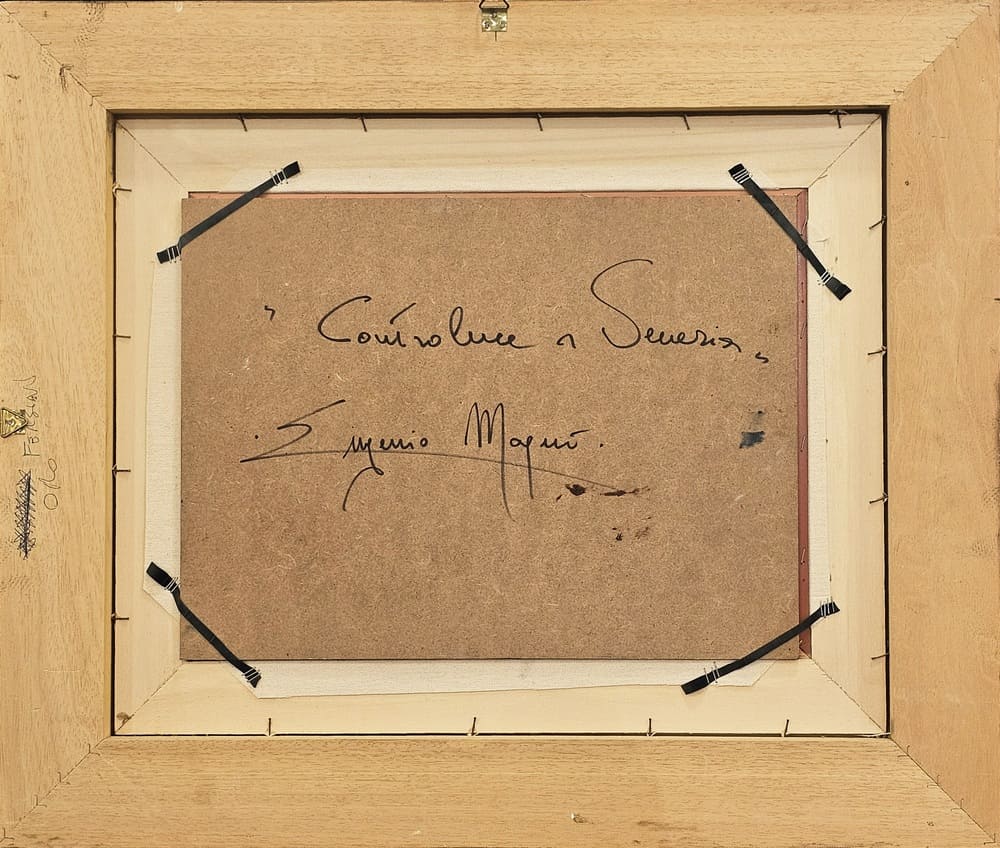 "Controluce a Venezia"
Eugenio Magno.
ORO